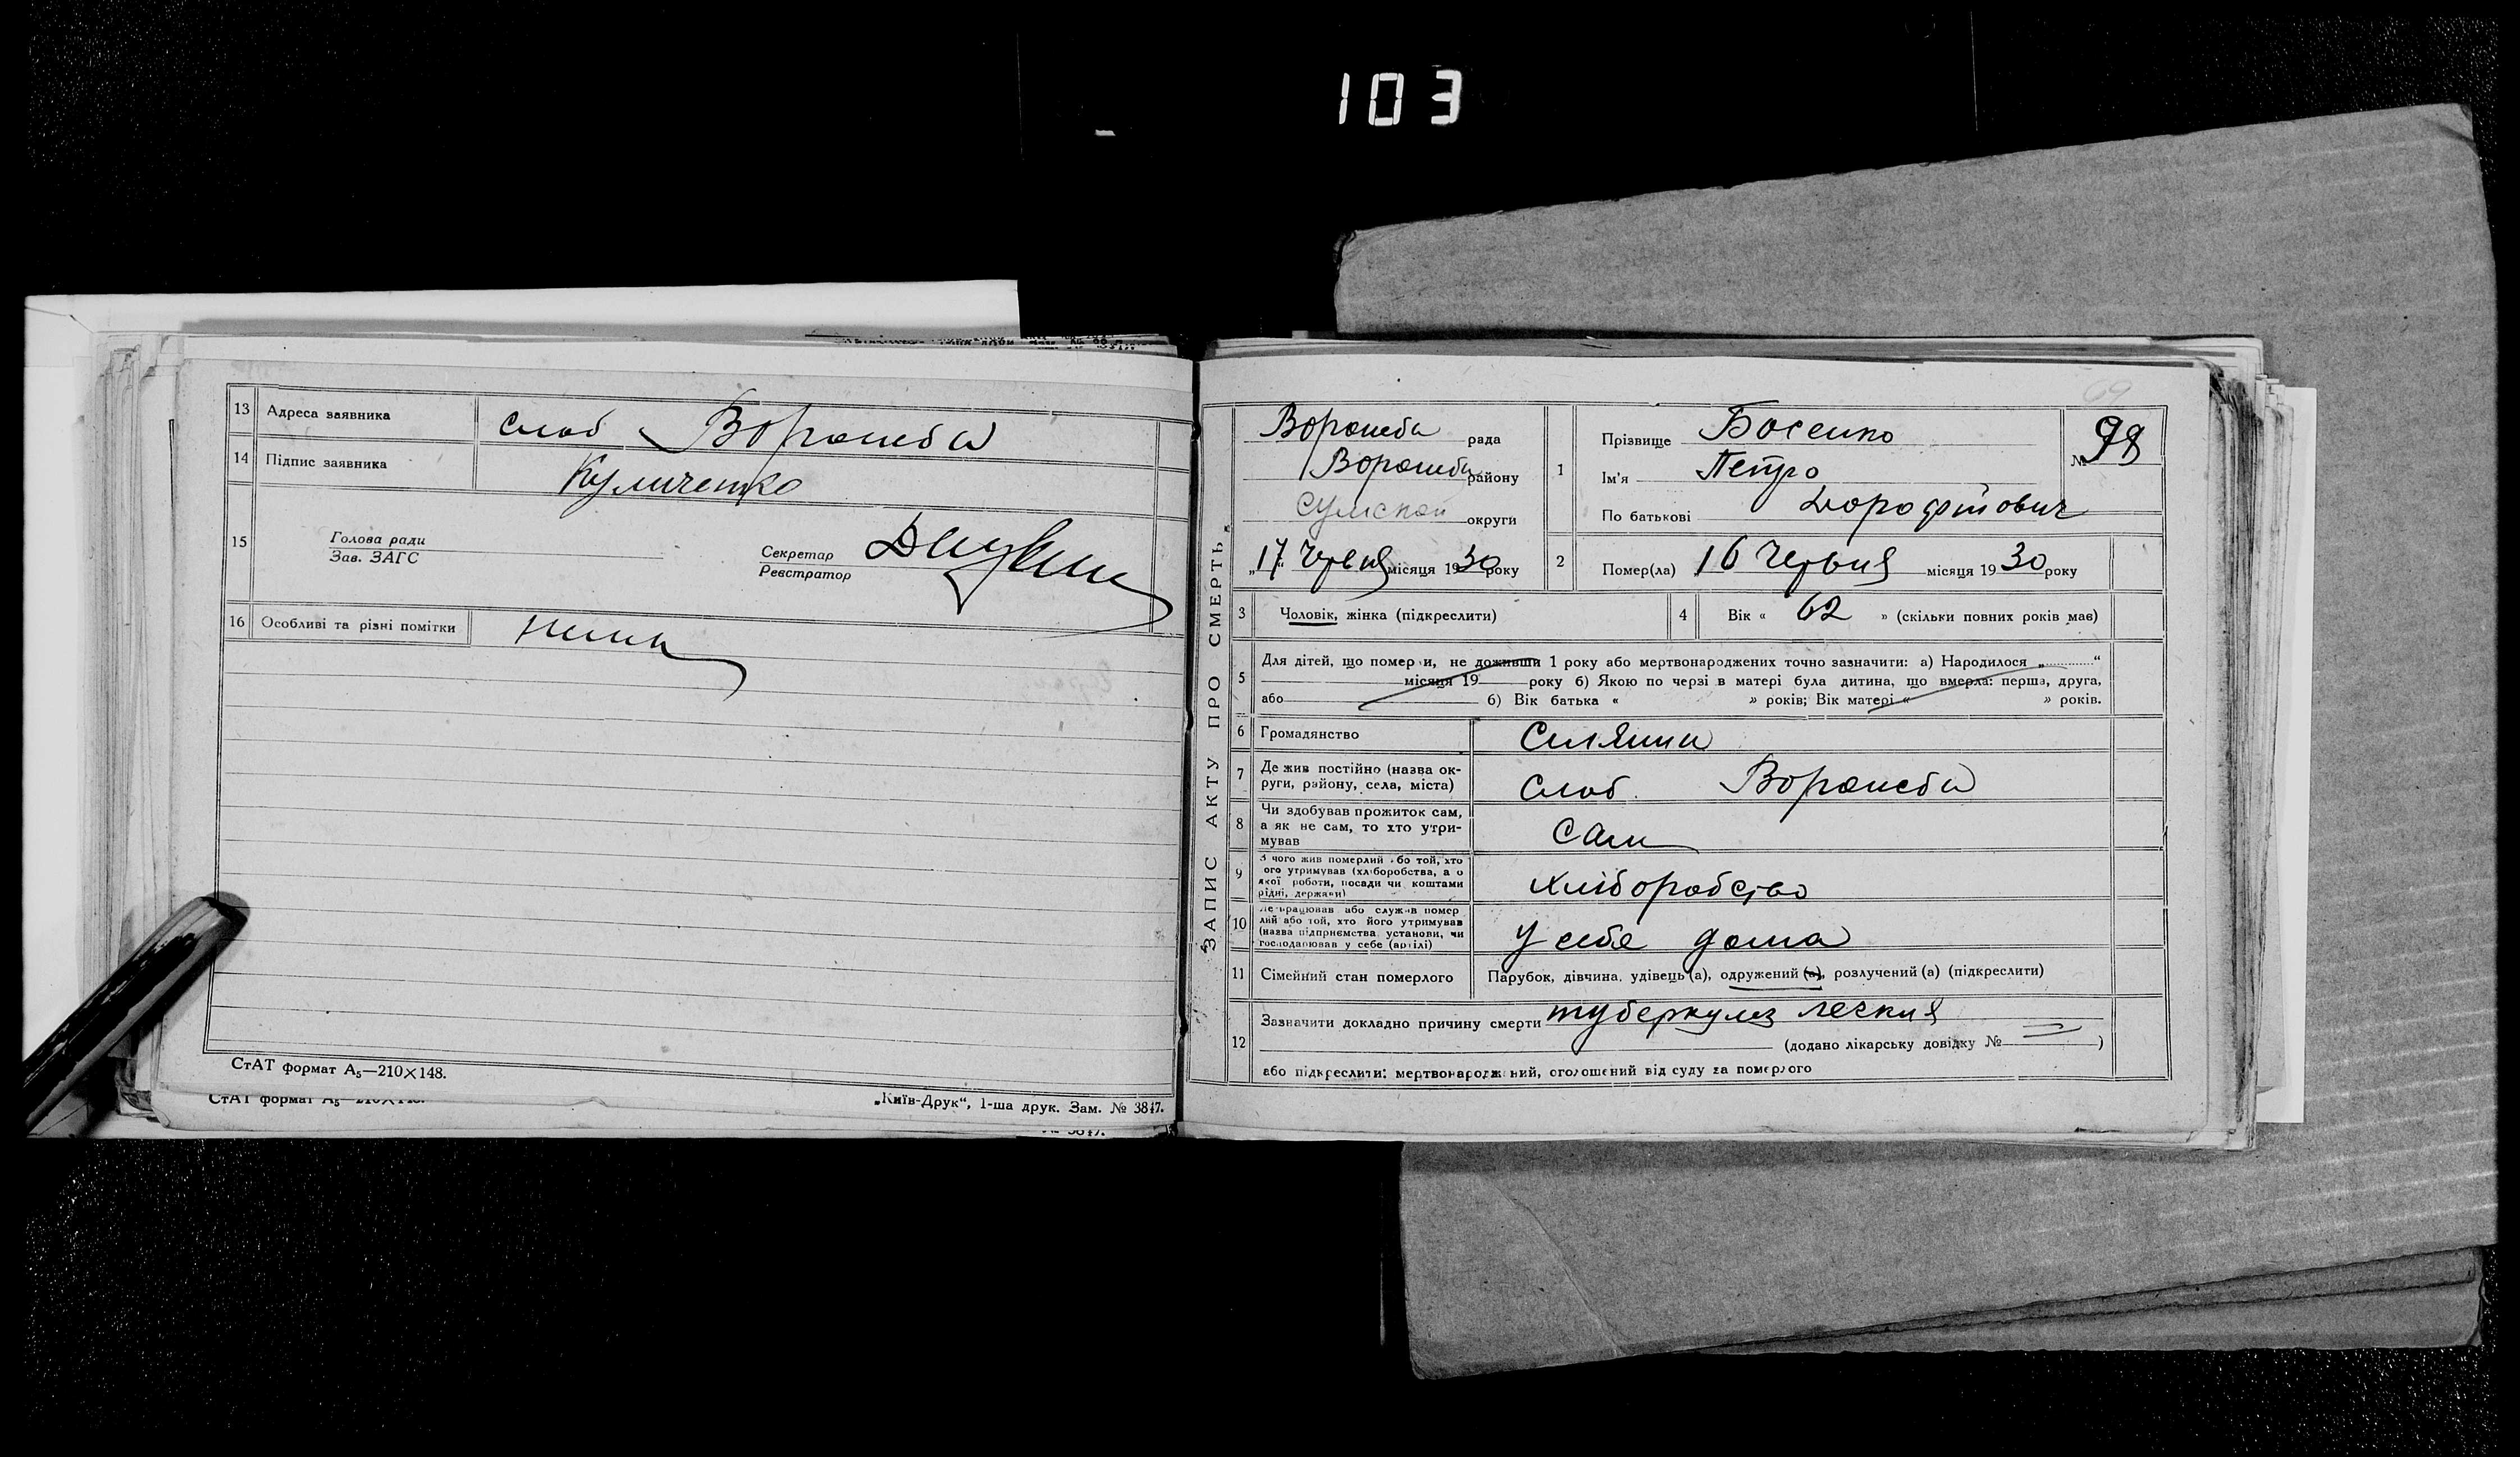 103
13 Адреса заявника слоб Ворожба
14 Підпис заявника Куличенко
15 Голова ради
Зав. ЗАГС
Секретар
Реєстратор
16 Особливі та різні помітки
СтАТ формат А₅—210×148.
СтАТ формат А₅—210×148.
„Київ-Друк“, 1-ша друк. Зам. № 3847.
№ 3847.
69
„ЗАПИС АКТУ ПРО СМЕРТЬ„
Ворожба рада
Ворожба району
Сумской округи
„17“ Червня місяця 1930 року
1 Прізвище Босенко
Ім'я Петро
По батькові Дорофтович
№ 98
2 Помер(ла) 16 Червня місяця 1930 року
3 Чоловік, жінка (підкреслити)
4 Вік « 62 » (скільки повних років має)
5 Для дітей, що померли, не доживши 1 року або мертвонароджених точно зазначити: а) Народилося „ “
місяця 19 року б) Якою по черзі в матері була дитина, що вмерла: перша, друга,
або б) Вік батька « » років; Вік матері « » років.
6 Громадянство Селянин
7 Де жив постійно (назва округи, району, села, міста) Слоб. Ворожба
8 Чи здобував прожиток сам, а як не сам, то хто утримував Сам
9 З чого жив померлий або той, хто ого утримував (хліборобства, а о якої роботи, посади чи коштами рідні, держави) хліборобство
10 Де працював або служив помер лий або той, хто його утримував (назва підприємства, установи, чи господарював у себе (артілі) У себе дома
11 Сімейний стан померлого Парубок, дівчина, удівець (а), одружений (а), розлучений (а) (підкреслити)
12 Зазначити докладно причину смерти туберкулез легкия
(додано лікарську довідку № = )
або підкреслити: мертвонароджений, оголошений від суду за померлого